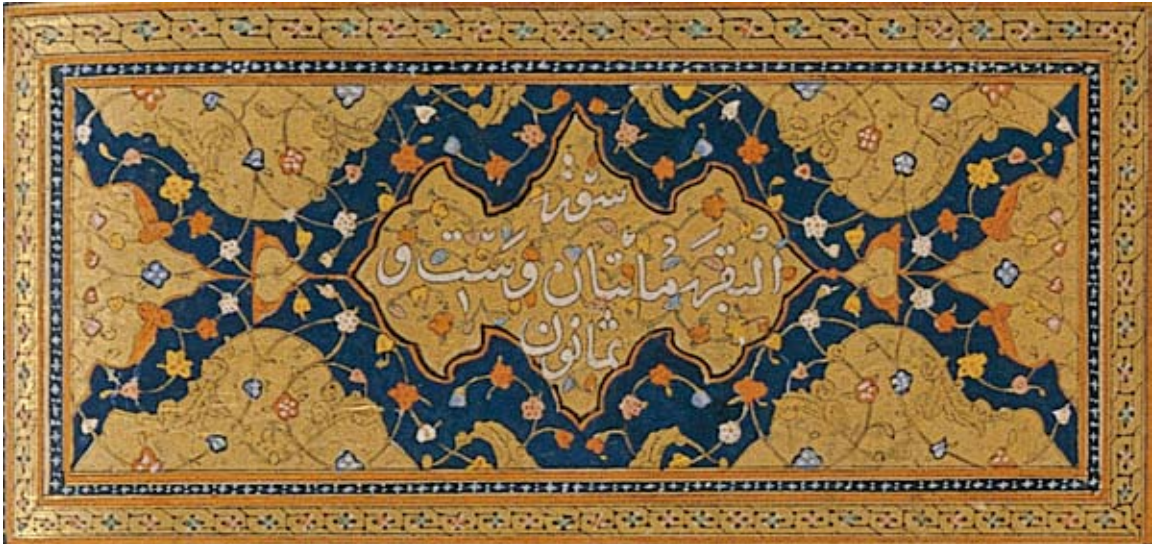 سورة
البقرة مائتان وست و
ثمانون